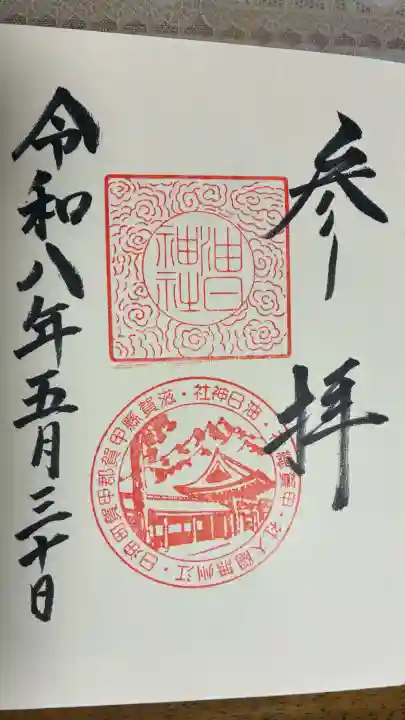 参拝
油日神社
油日神社・滋賀縣甲賀郡甲賀町油日・江州
令和八年五月三十日